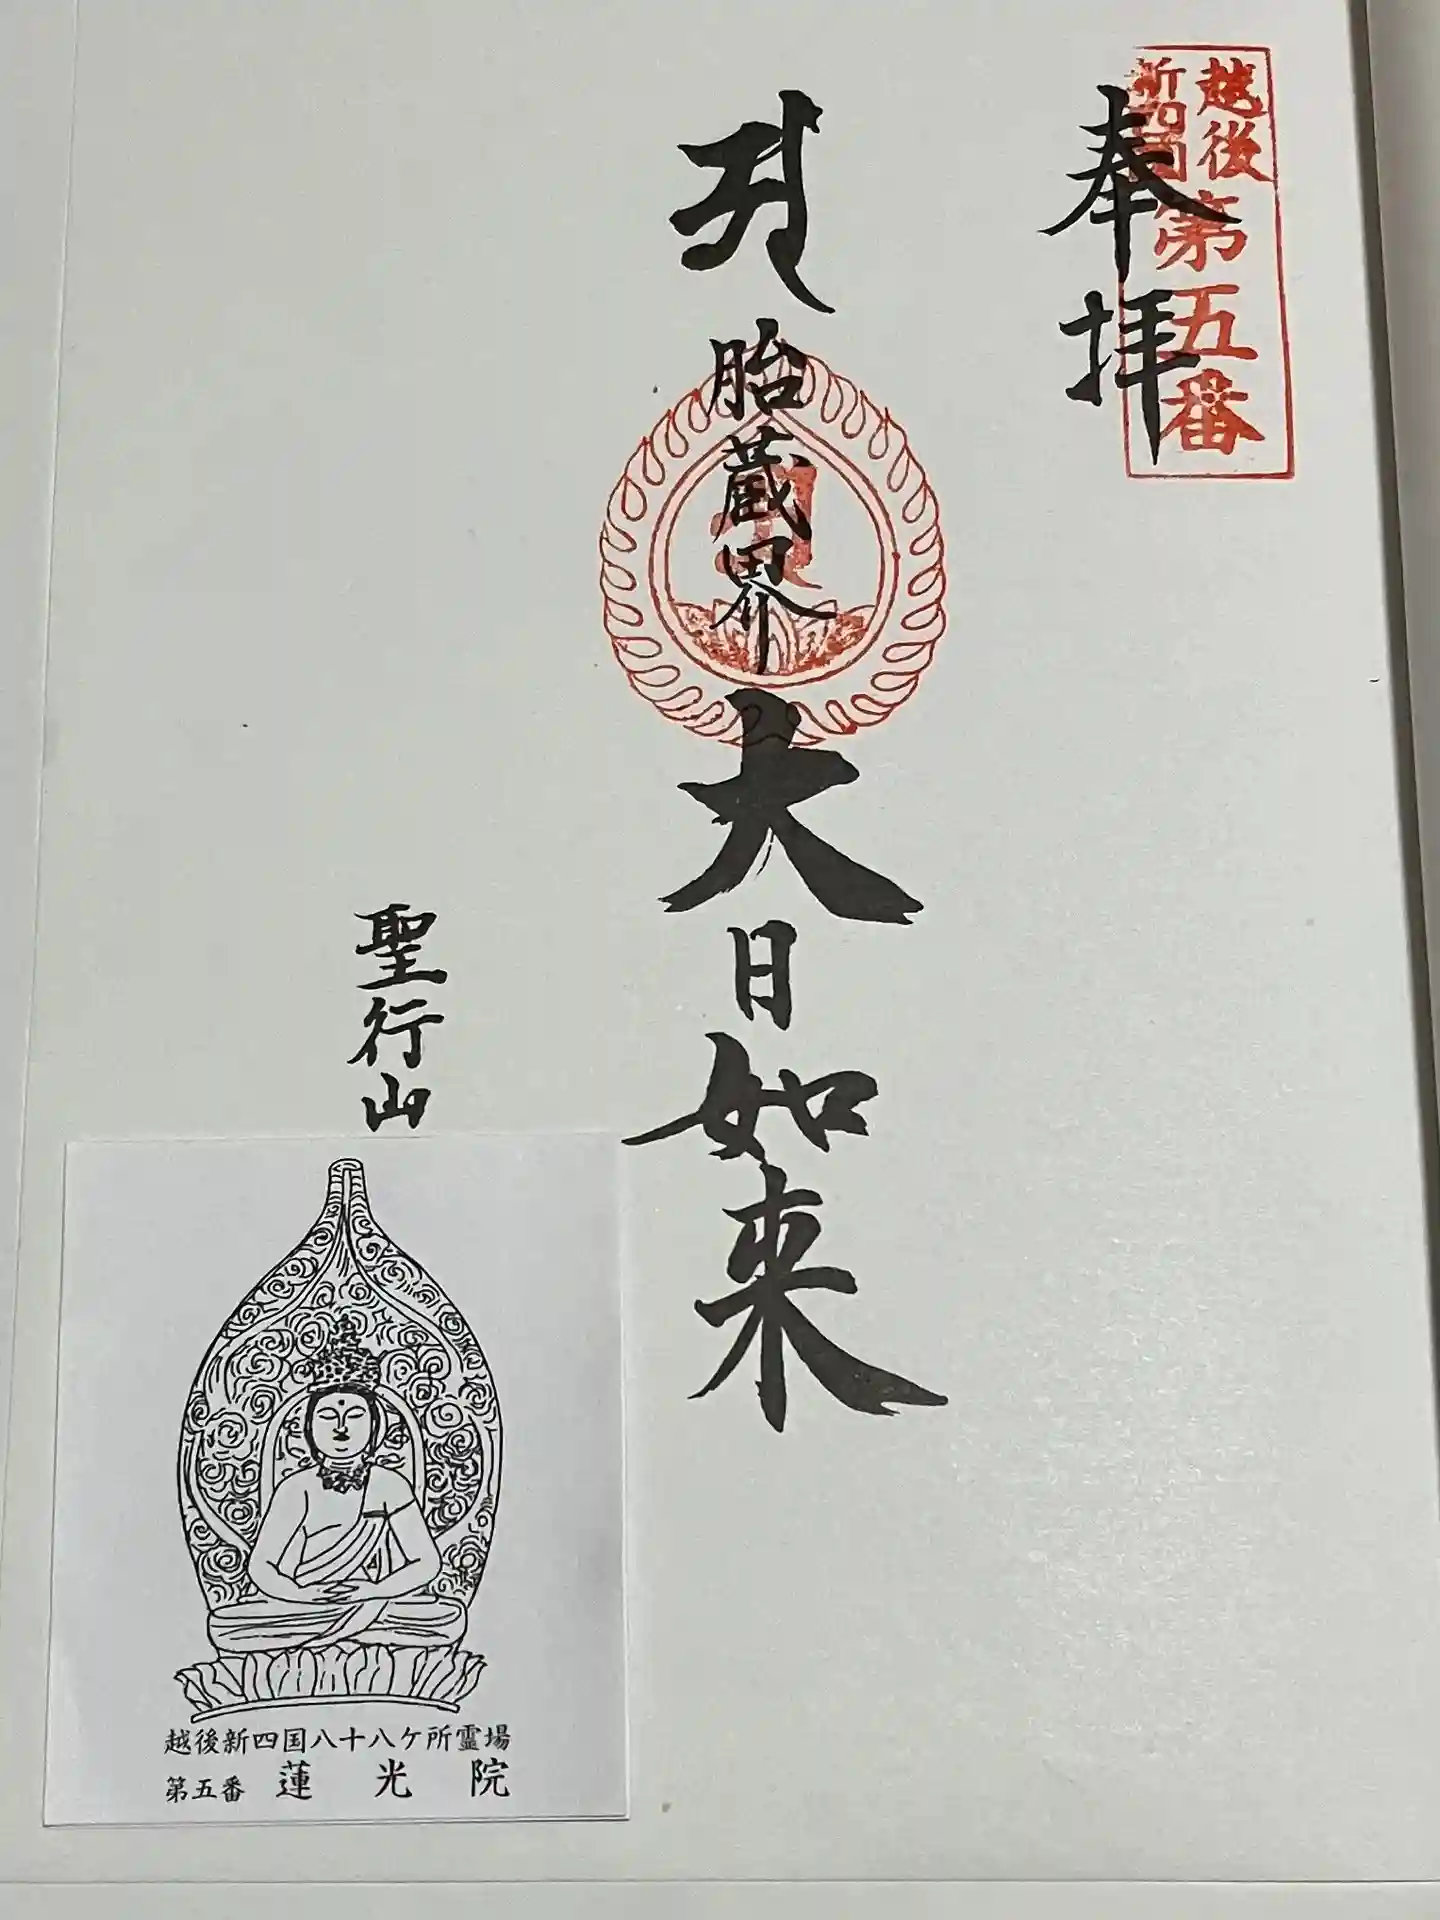 越後
新四国
第五番
奉拝
胎蔵界大日如来
聖行山
越後新四国八十八ケ所霊場
第五番 蓮光院